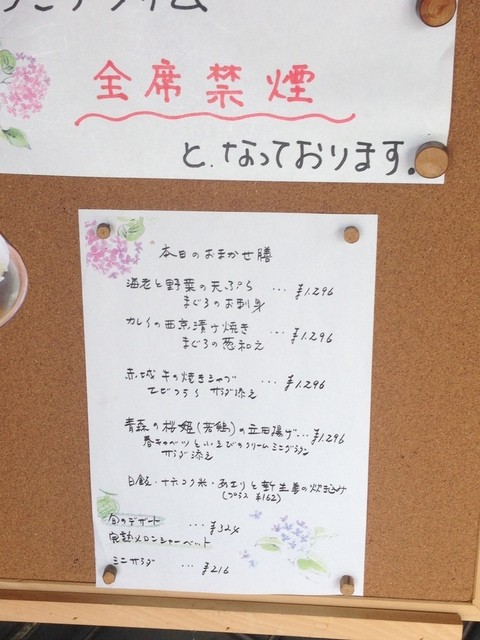 全席禁煙
と、なっております。
本日のおまかせ膳
海老と野菜の天ぷら … ¥1.296
まぐろのお刺身
カレイの西京漬け焼き … ¥1.296
まぐろの葱和え
赤城牛の焼きシャブ … ¥1.296
サラダ添え
青森の桜姫(若鶏)の立田揚げ … ¥1.296
春キャベツと小えびのクリームミニグラタン
サラダ添え
白飯・十六コク米・あさりと新生姜の炊込み
(プラス ¥162)
旬のデザート … ¥324
完熟メロンシャーベット
ミニサラダ … ¥216